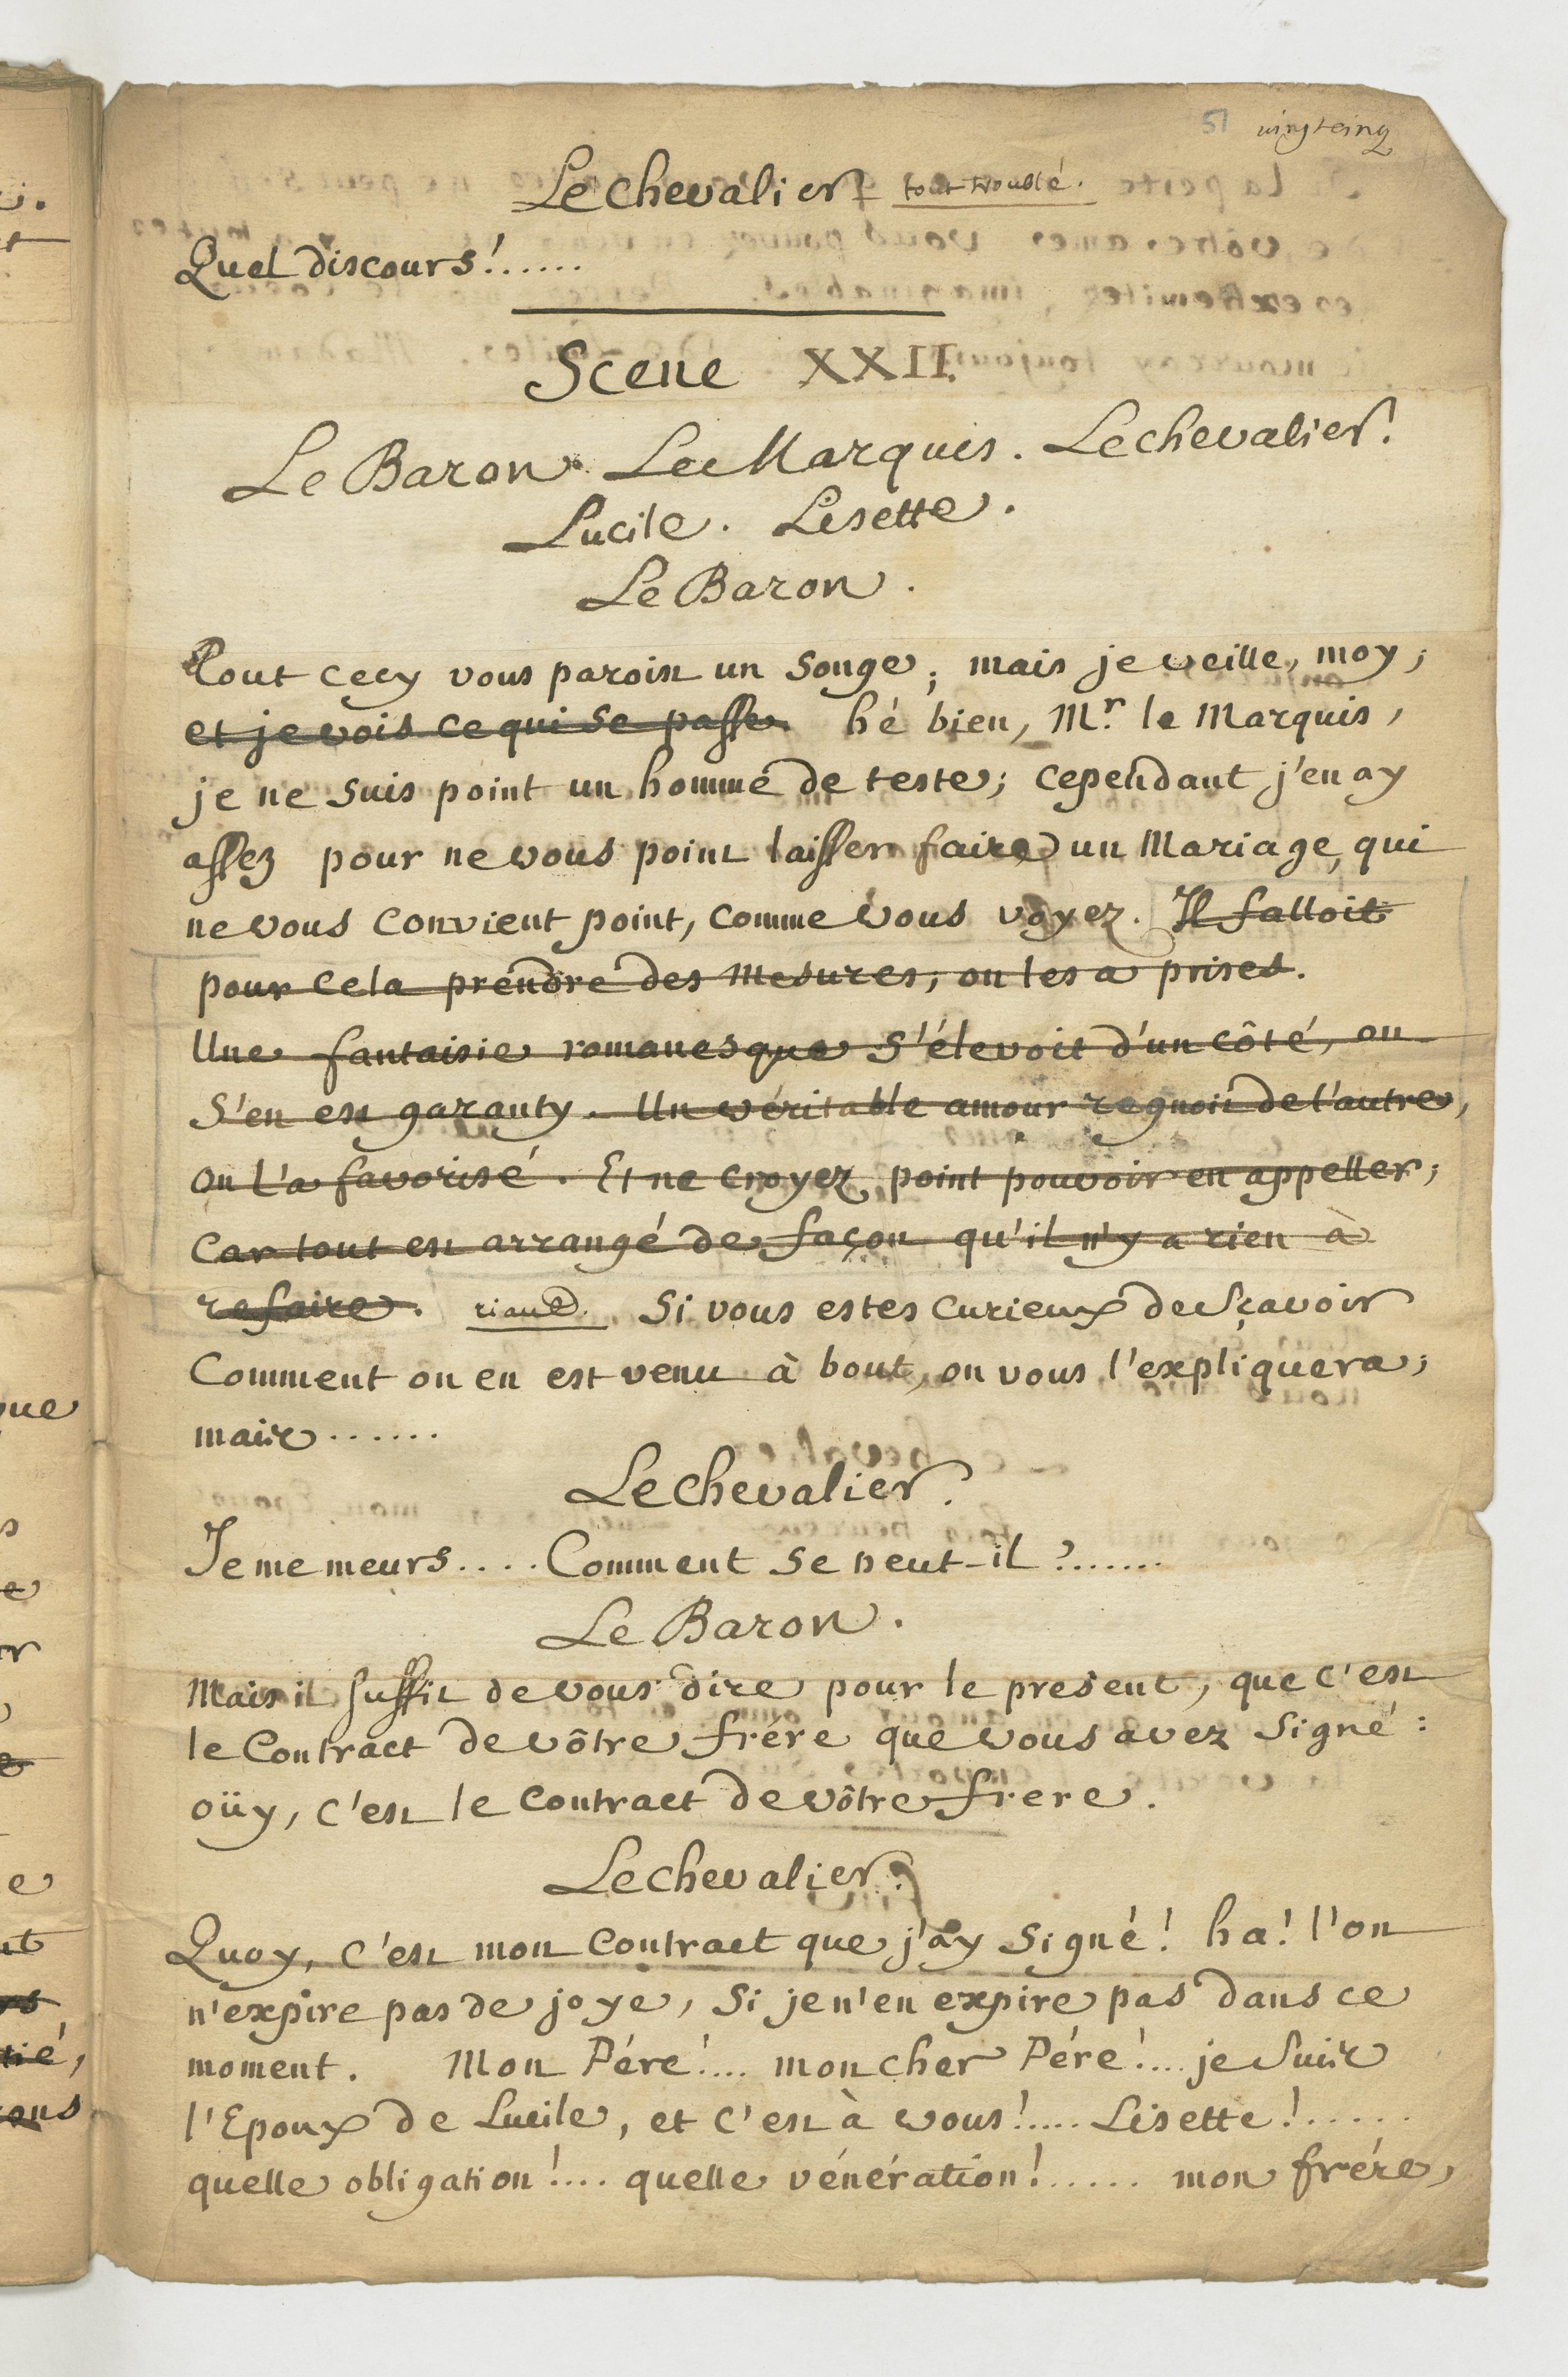 51 vingtcinq
Le chevalier tout troublé.
Quel discours!......
Scene XXII.
Le Baron. Le Marquis. Le chevalier.
Lucile. Lisette.
Le Baron.
Tout cecy vous paroist un songe; mais je veille, moy;
et je vois ce qui se passe. hé bien, Mr. le Marquis,
je ne suis point un homme de teste; cependant j'en ay
assez pour ne vous point laisser faire un Mariage, qui
ne vous convient point, comme vous voyez. Il falloit
pour cela prendre des mesures; on les a prises.
Une fantaisie romanesque s'élevoit d'un côté, on
s'en est garanty. Un véritable amour regnoit de l'autre,
on l'a favorisé. Et ne croyez point pouvoir en appeller;
car tout est arrangé de façon qu'il n'y a rien à
refaire. riant. Si vous estes curieux de sçavoir
Comment on en est venu à bout, on vous l'expliquera;
mais......
Le chevalier.
Je me meurs.... Comment se peut-il?......
Le Baron.
Mais il suffit de vous dire pour le present, que c'est
le Contract de vôtre frére que vous avez signé:
oüy, c'est le contract de vôtre frere.
Le chevalier.
Quoy, c'est mon contract que j'ay signé! ha! l'on
n'expire pas de joye, si je n'en expire pas dans ce
moment. Mon Pére!.... mon cher Pére!.... je suis
l'Epoux de Lucile, et c'est à vous!.... Lisette!.....
quelle obligation!.... quelle vénération!...... mon frére,